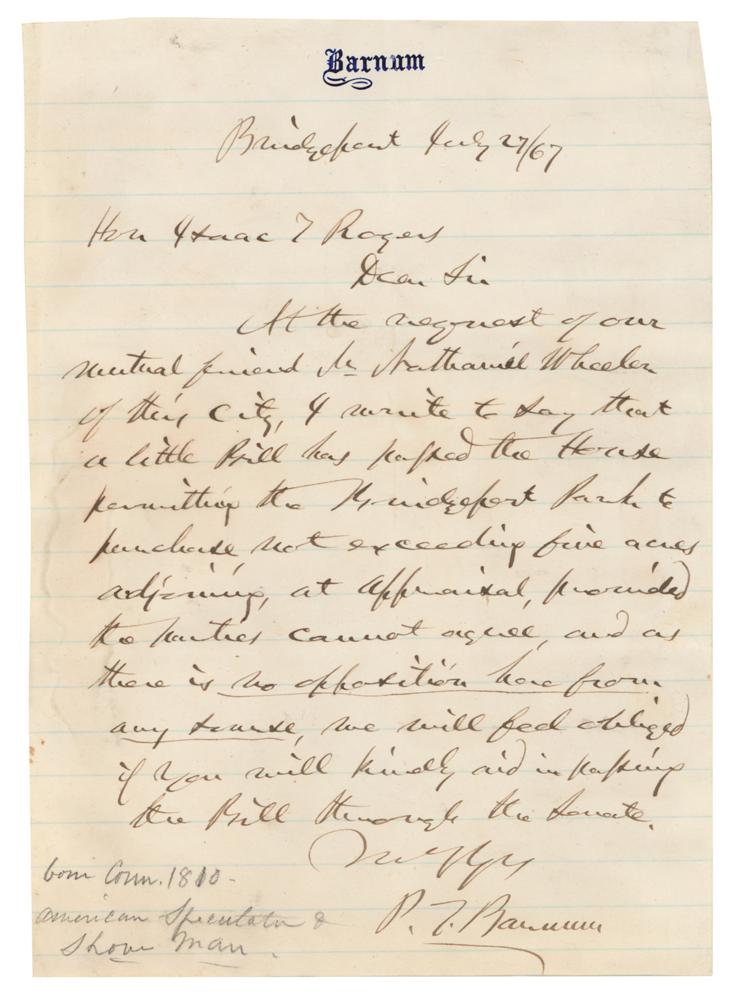 Barnum
Bridgeport July 27/67
Hon Isaac T Rogers
Dear Sir
At the request of our
mutual friend Mr Nathaniel Wheeler
of this City, I write to say that
a little Bill has passed the House
permitting the Bridgeport Park to
purchase, not exceeding five acres
adjoining, at appraisal, provided
the parties cannot agree, and as
there is no opposition here from
any source, we will feel obliged
if you will kindly aid in passing
the Bill through the Senate.
P. T. Barnum
born Conn. 1810-
american Speculator &
Show Man.